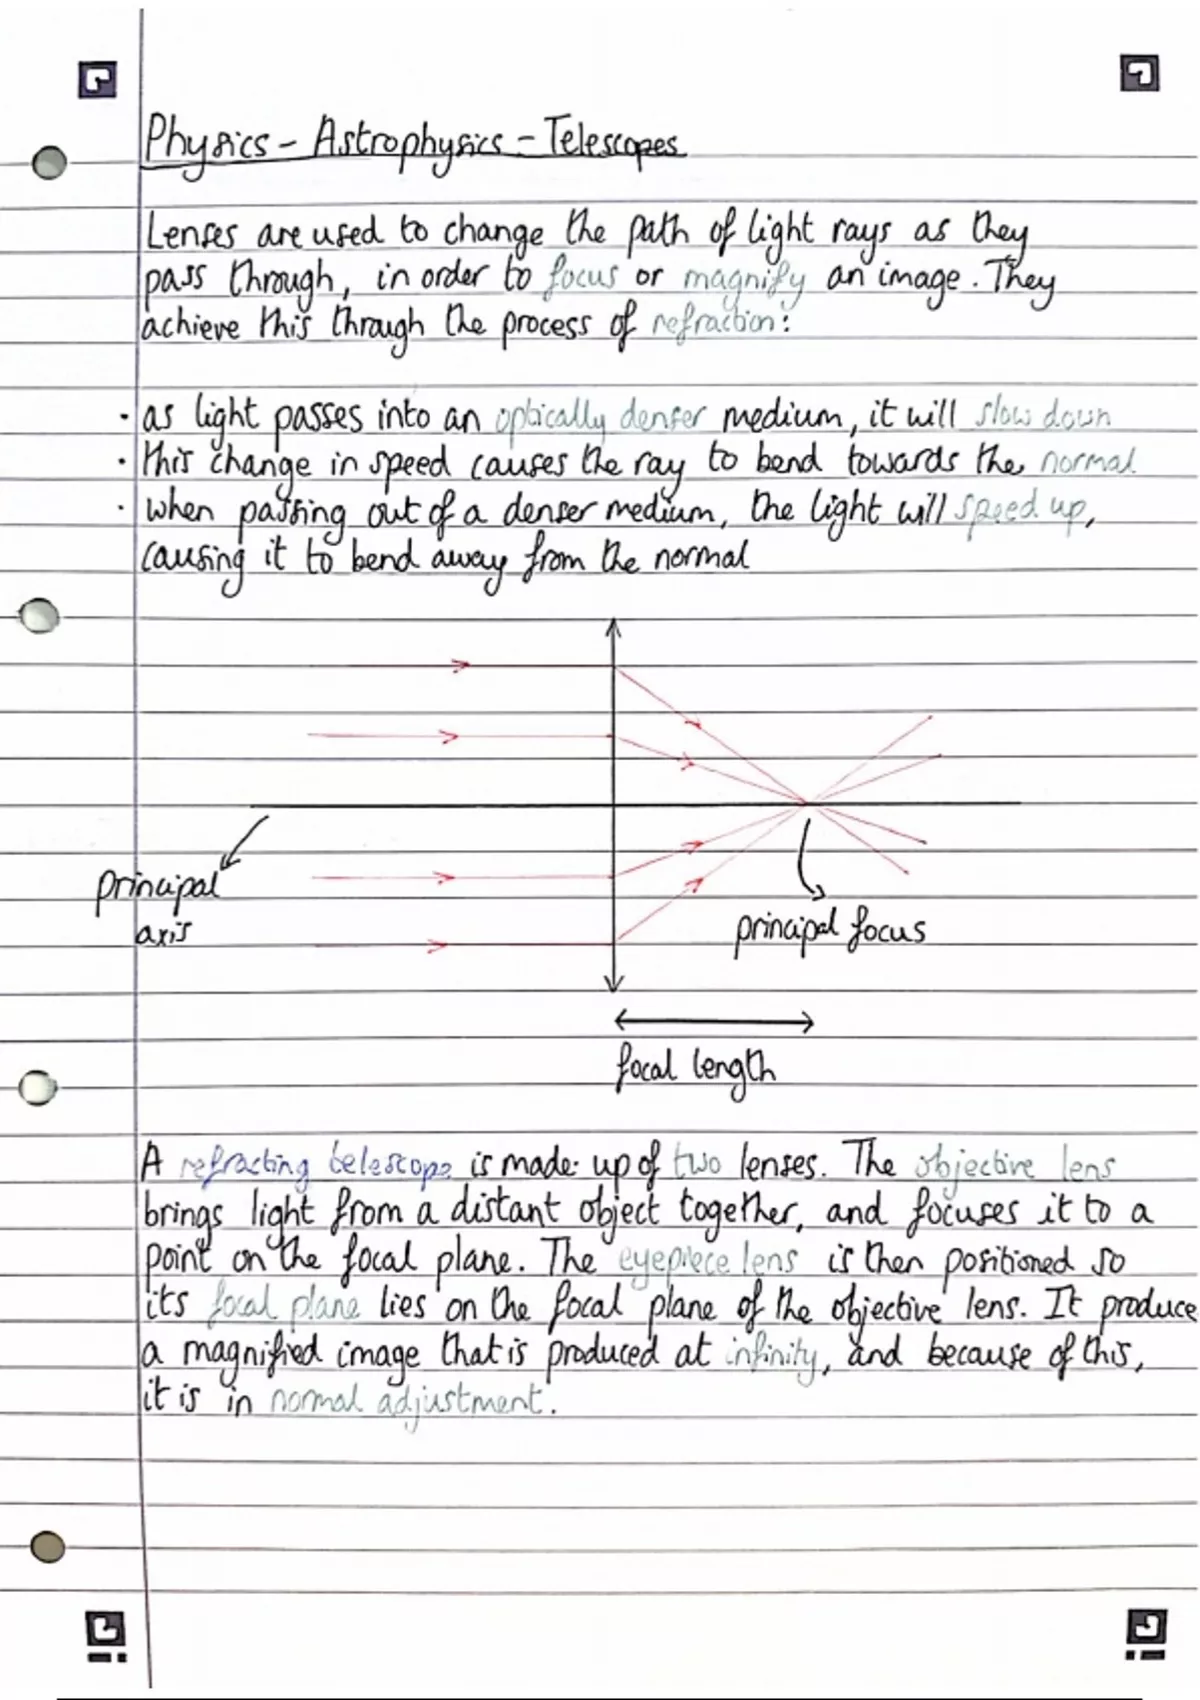 Physics - Astrophysics - Telescopes
Lenses are used to change the path of light rays as they
pass through, in order to focus or magnify an image. They
achieve this through the process of refraction:
· as light passes into an optically denser medium, it will slow down
· this change in speed causes the ray to bend towards the normal
· when passing out of a denser medium, the light will speed up,
causing it to bend away from the normal
principal
axis
principal focus
focal length
A refracting telescope is made up of two lenses. The objective lens
brings light from a distant object together, and focuses it to a
point on the focal plane. The eyepiece lens is then positioned so
its focal plane lies on the focal plane of the objective lens. It produce
a magnified image that is produced at infinity, and because of this,
it is in normal adjustment.